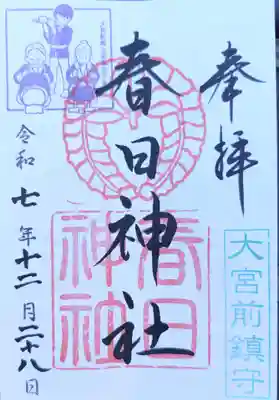 奉拝
春日神社
春日
神社
大宮前鎮守
令和七年十二月二十八日